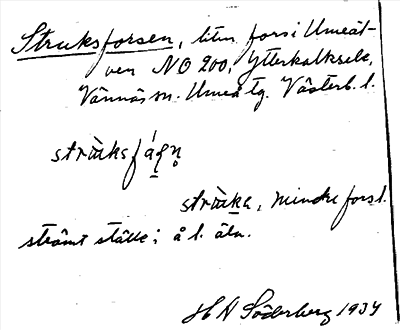 Struksforsen, liten fors i Umeält-
ven NO 200, Ytterkalksele,
Vännäs sn. Umeå tg. Västerb. l.
stràksfáɽn̥
stràka, mindre fors l.
strömt ställe; å l. älv.
H A Söderberg 1934